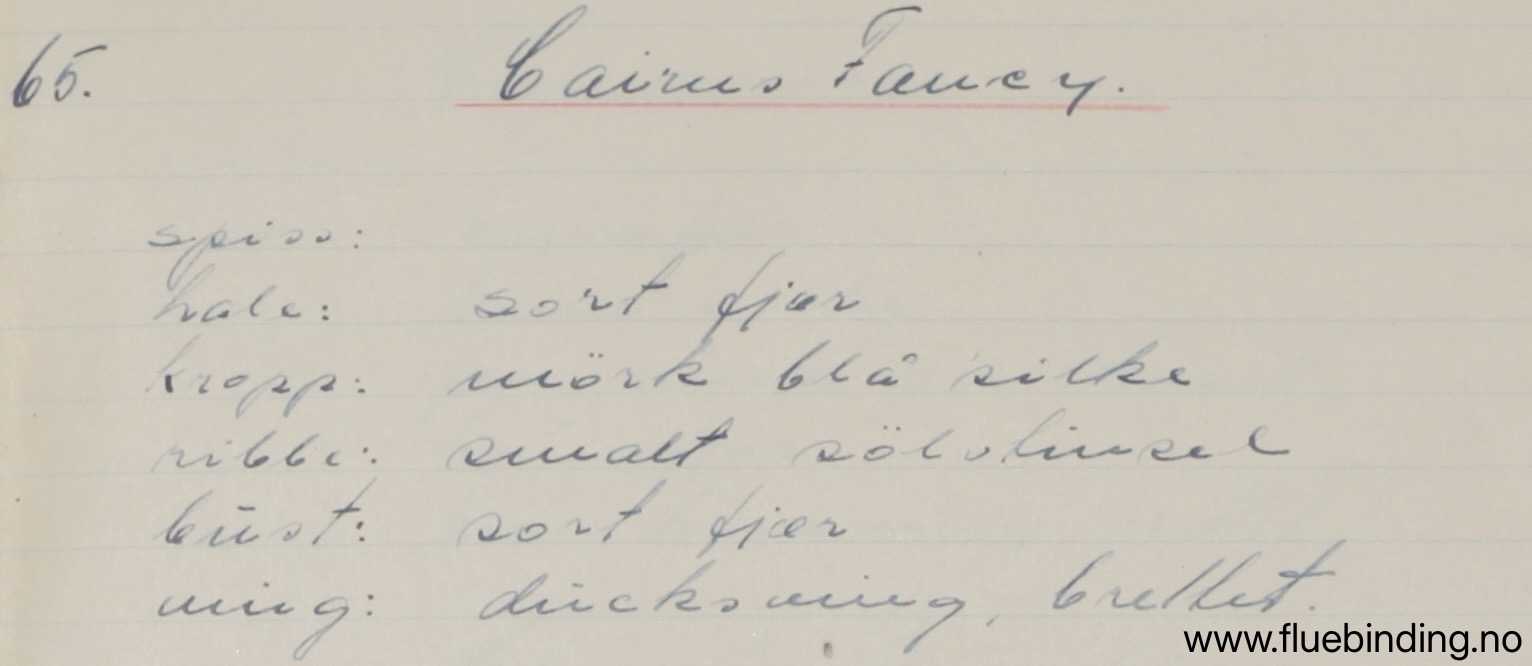 65. Cairns Fancy.
spiss:
hale: sort fjær
kropp: mörk blå silke
ribbe: smalt sölvtinsel
büst: sort fjær
ving: ducksving, brettet.
www.fluebinding.no